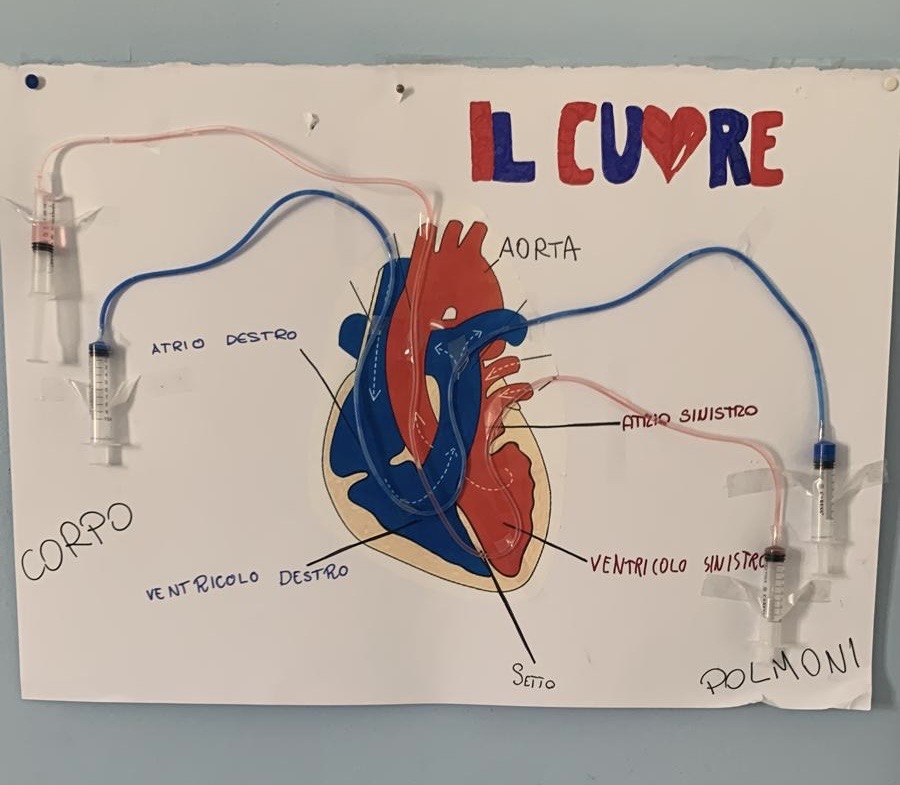 IL CUORE
AORTA
ATRIO DESTRO
ATRIO SINISTRO
CORPO
VENTRICOLO DESTRO
VENTRICOLO SINISTRO
SETTO
POLMONI